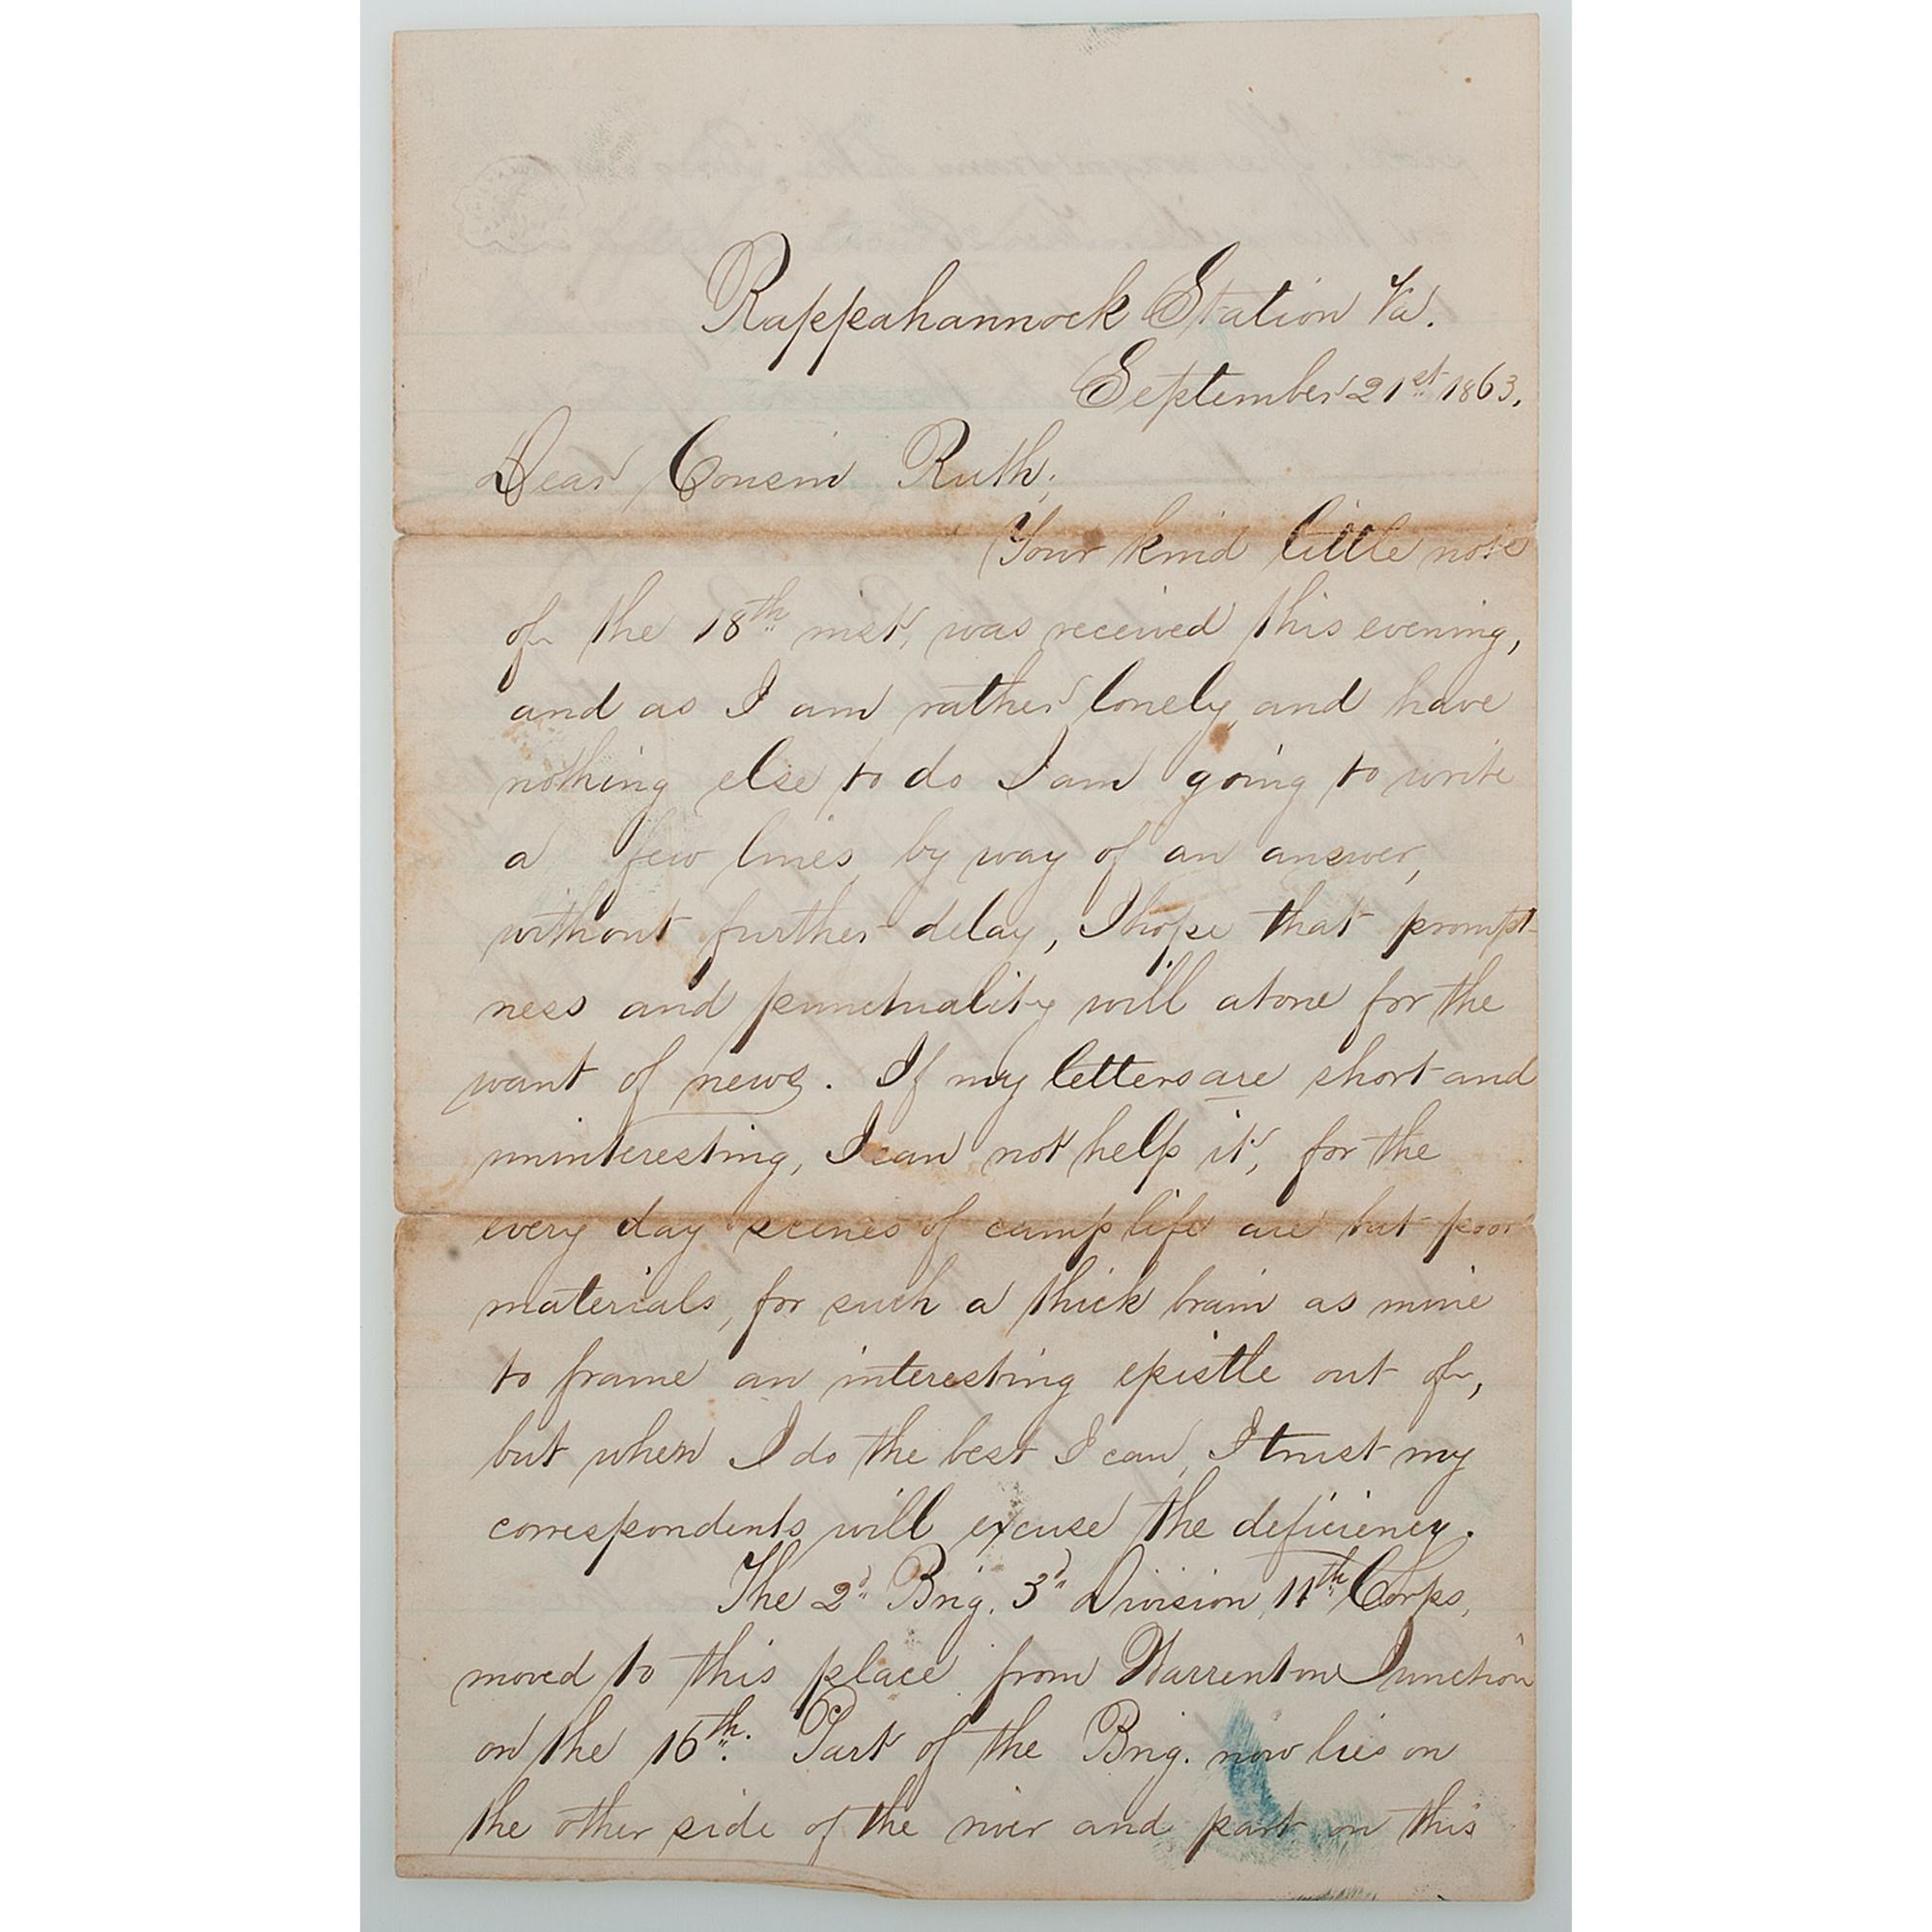 Rappahannock Station Va.
September 21st 1863.
Dear Cousin Ruth;
Your kind little note
of the 18th inst, was received this evening,
and as I am rather lonely, and have
nothing else to do I am going to write
a few lines, by way of an answer,
without further delay, I hope that prompt-
ness and punctuality will atone for the
want of news. If my letters are short and
uninteresting, I can not help it, for the
every day scenes of camp life are but poor
materials, for such a thick brain as mine
to frame an interesting epistle out of,
but when I do the best I can, I trust my
correspondents will excuse the deficiency.
The 2d Brig. 3d Division, 11th Corps,
moved to this place from Warrenton Junction
on the 16th. Part of the Brig. now lies on
the other side of the river and part on this